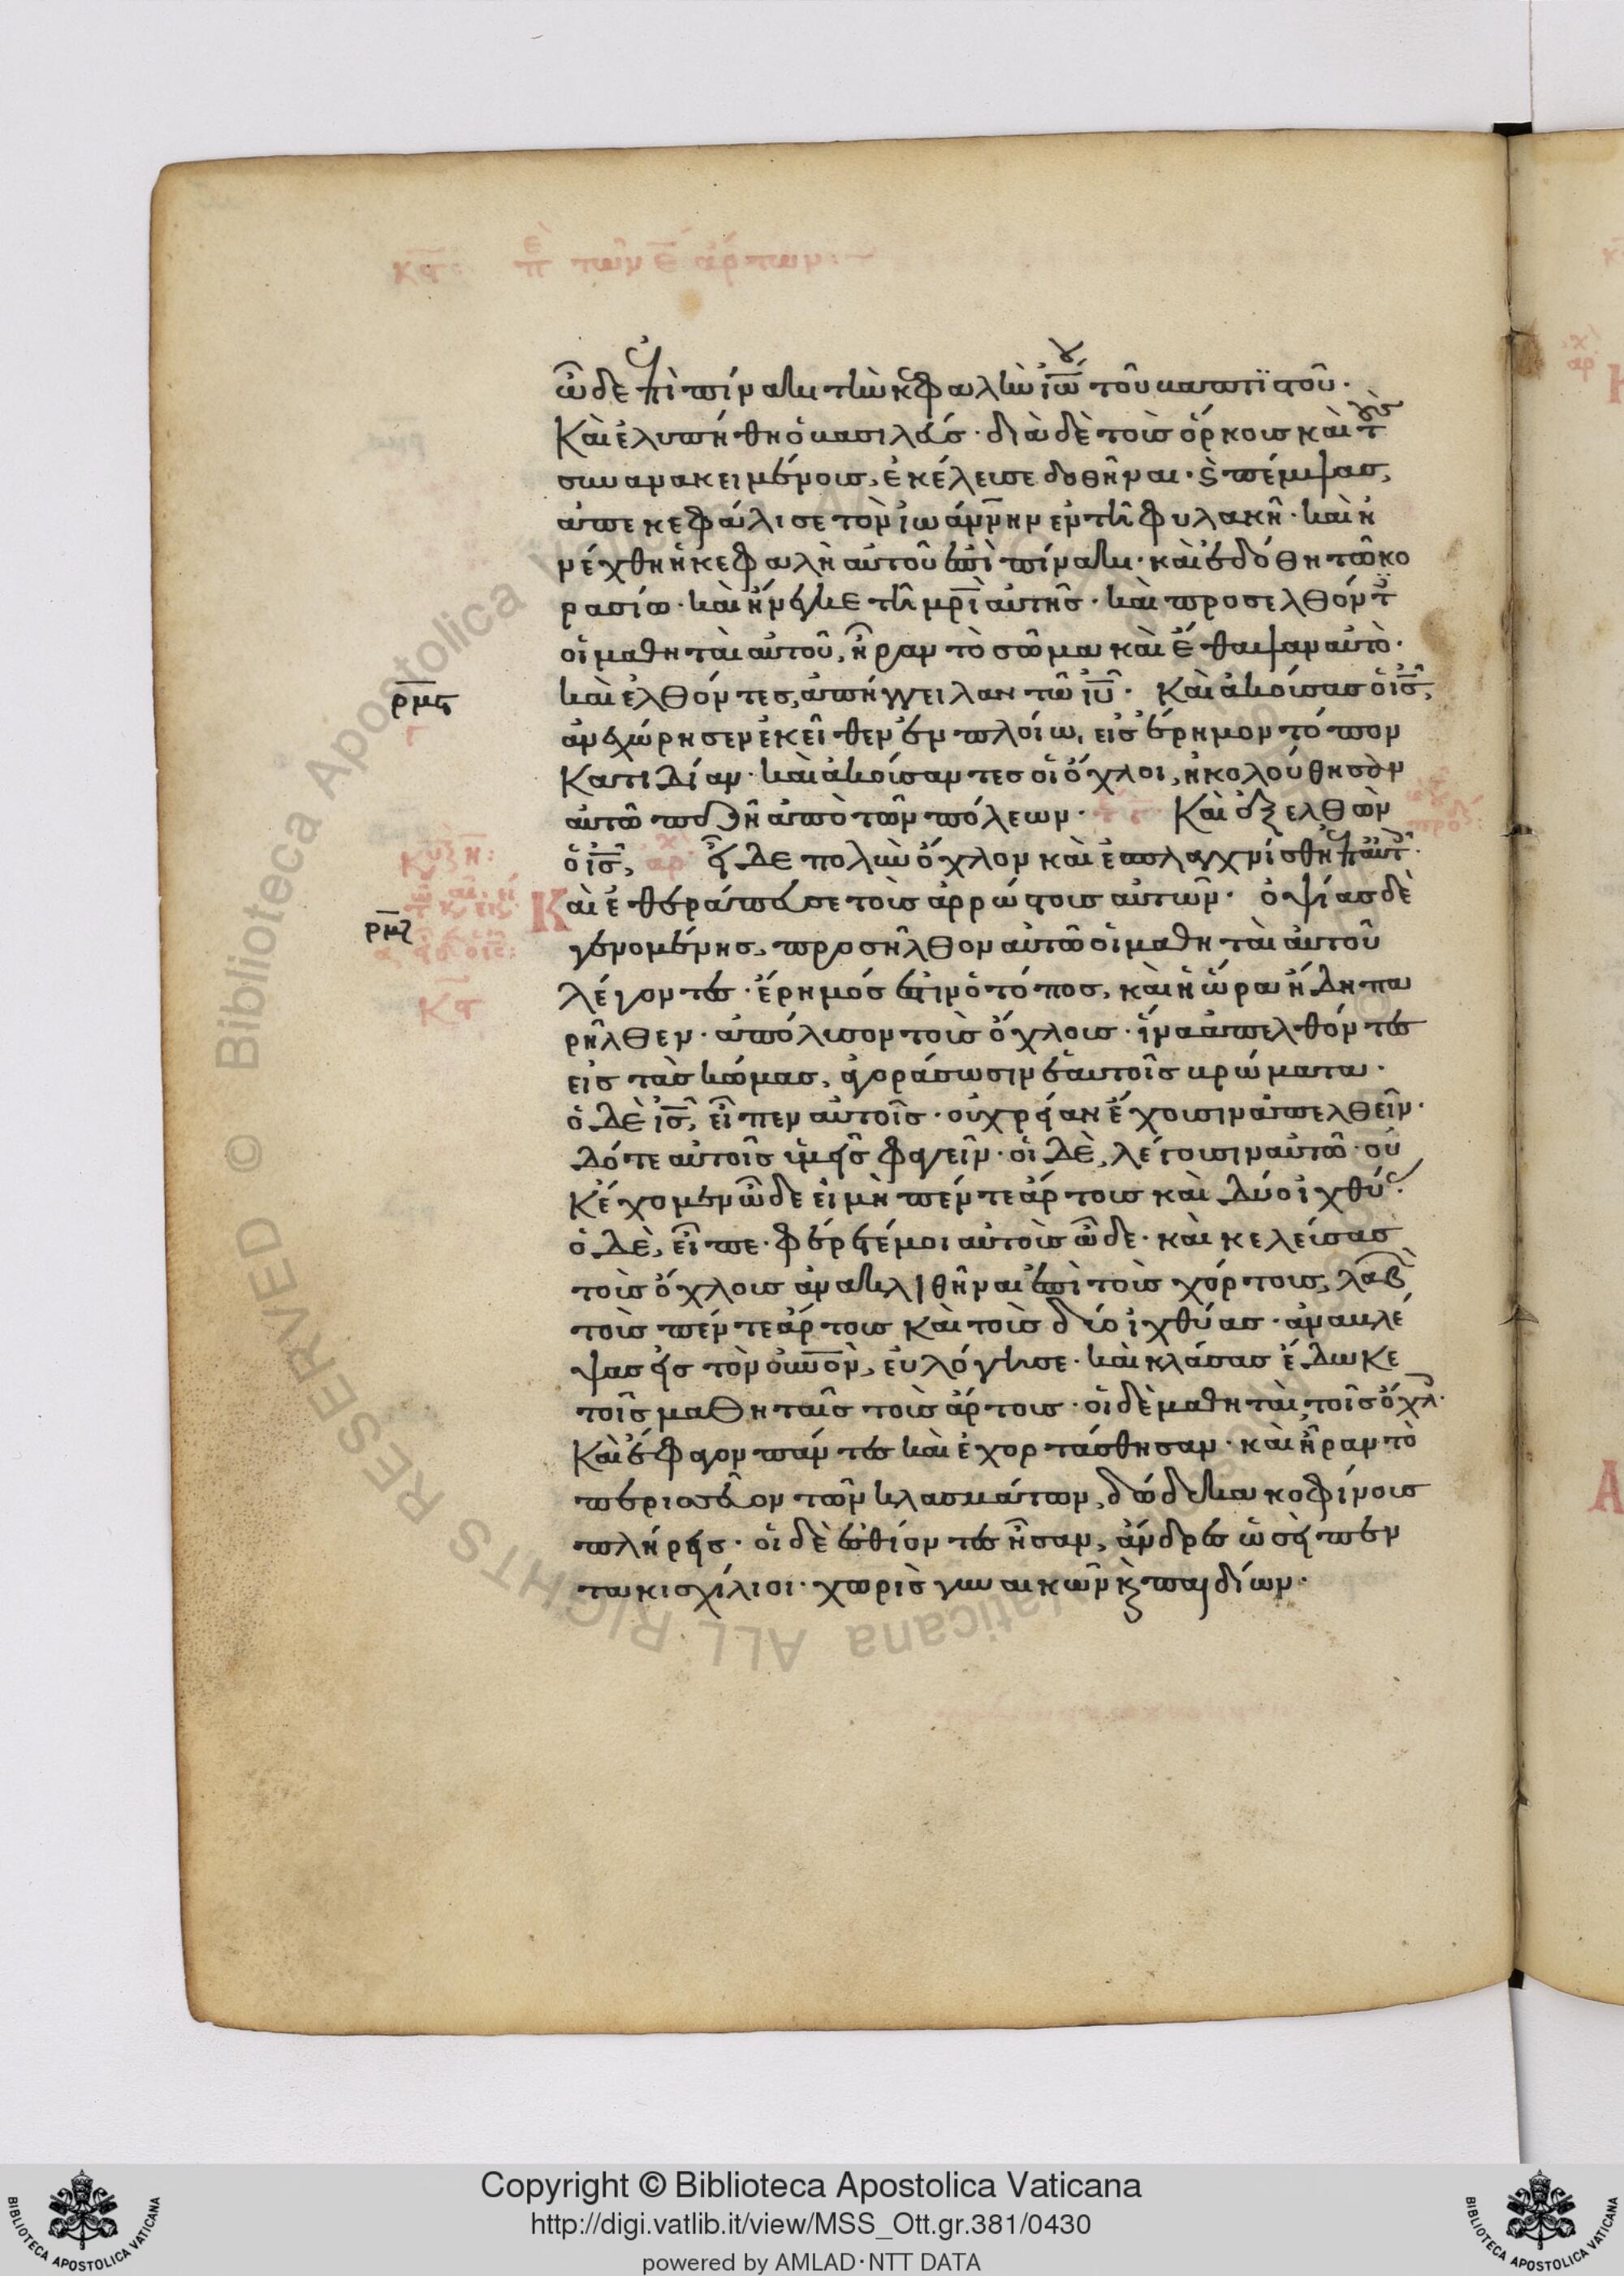 ὧδε ἐπὶ πίνακι τὴν κεφαλὴν ἰῶ τοῦ βαπτϊστοῦ·
Καὶ ἐλυπήθη ὁ βασιλεύς· διὰ δὲ τοὺς ὅρκους καὶ τοὺς
συνανακειμένους, ἐκέλευσε δοθῆναι· καὶ πέμψας,
ἀπεκεφάλισε τὸν ἰωάννην ἐν τῆ φυλακῆ· καὶ ἠ
νέχθη ἡ κεφαλὴ αὐτοῦ ἐπὶ πίνακι· καὶ ἐδόθη τῶ κο
ρασίω· καὶ ἤνεγκε τῆ μρὶ αὐτῆς· καὶ προσελθόντ
οἱ μαθηταὶ αὐτοῦ, ἦραν τὸ σῶμα καὶ ἔθαψαν αὐτὸ·
ρμς καὶ ἐλθόντες, ἀπήγγειλαν τῶ ἰῦ· Καὶ ἀκούσας ὁ ἰς,
ἀνεχώρησεν ἐκεῖθεν ἐν πλοίω, εἰς ἔρημον τόπον
κατιδίαν· καὶ ἀκούσαντες οἱ ὄχλοι, ἠκολούθησαν
αὐτῶ πεζῆ ἀπὸ τῶν πόλεων· Καὶ ἐξελθὼν
ὁ ἰς, εἶδε πολὺν ὄχλον καὶ ἐσπλαγχνίσθη ἐπ αὐτ·
Καὶ ἐθεράπευσε τοὺς ἀρρώστους αὐτῶν· ὀψίας δὲ
ρμζ γενομένης, προσῆλθον αὐτῶ οἱ μαθηταὶ αὐτοῦ
λέγοντες· ἔρημός ἐστιν ὁ τόπος, καὶ ἡ ὥρα ἤδη πα
ρῆλθεν· ἀπόλυσον τοὺς ὄχλους· ἵνα ἀπελθόντες
εἰς τὰς κώμας, ἀγοράσωσιν ἑαυτοῖς βρώματα·
ὁ δὲ ἰς, εἶπεν αὐτοῖς· οὐ χρείαν ἔχουσιν ἀπελθεῖν·
δότε αὐτοῖς ὑμεῖς φαγεῖν· οἱ δὲ, λέγουσιν αὐτῶ· οὐ
κ ἔχομεν ὧδε εἰ μὴ πέντε ἄρτους καὶ δύο ἰχθύας·
ὁ δὲ, εἶπε· φέρετέ μοι αὐτοὺς ὧδε· καὶ κελεύσας
τοὺς ὄχλους ἀνακλιθῆναι ἐπὶ τοὺς χόρτους, λαβὼ
τοὺς πέντε ἄρτους καὶ τοὺς δύο ἰχθύας· ἀναβλέ
ψας εἰς τὸν οὐνὸν, εὐλόγησε· καὶ κλάσας ἔδωκε
τοῖς μαθηταῖς τοὺς ἄρτους· οἱ δὲ μαθηταὶ, τοῖς ὄχλ·
Καὶ ἔφαγον πάντες καὶ ἐχορτάσθησαν· καὶ ἦραν τὸ
περισσεῦον τῶν κλασμάτων, δώδεκα κοφίνους
πλήρεις· οἱ δὲ ἐσθίοντες ἦσαν, ἄνδρες ὡσεὶ πεν
τακισχίλιοι· χωρὶς γυναικῶν καὶ παιδίων·
Copyright © Biblioteca Apostolica Vaticana
http://digi.vatlib.it/view/MSS_Ott.gr.381/0430
powered by AMLAD·NTT DATA